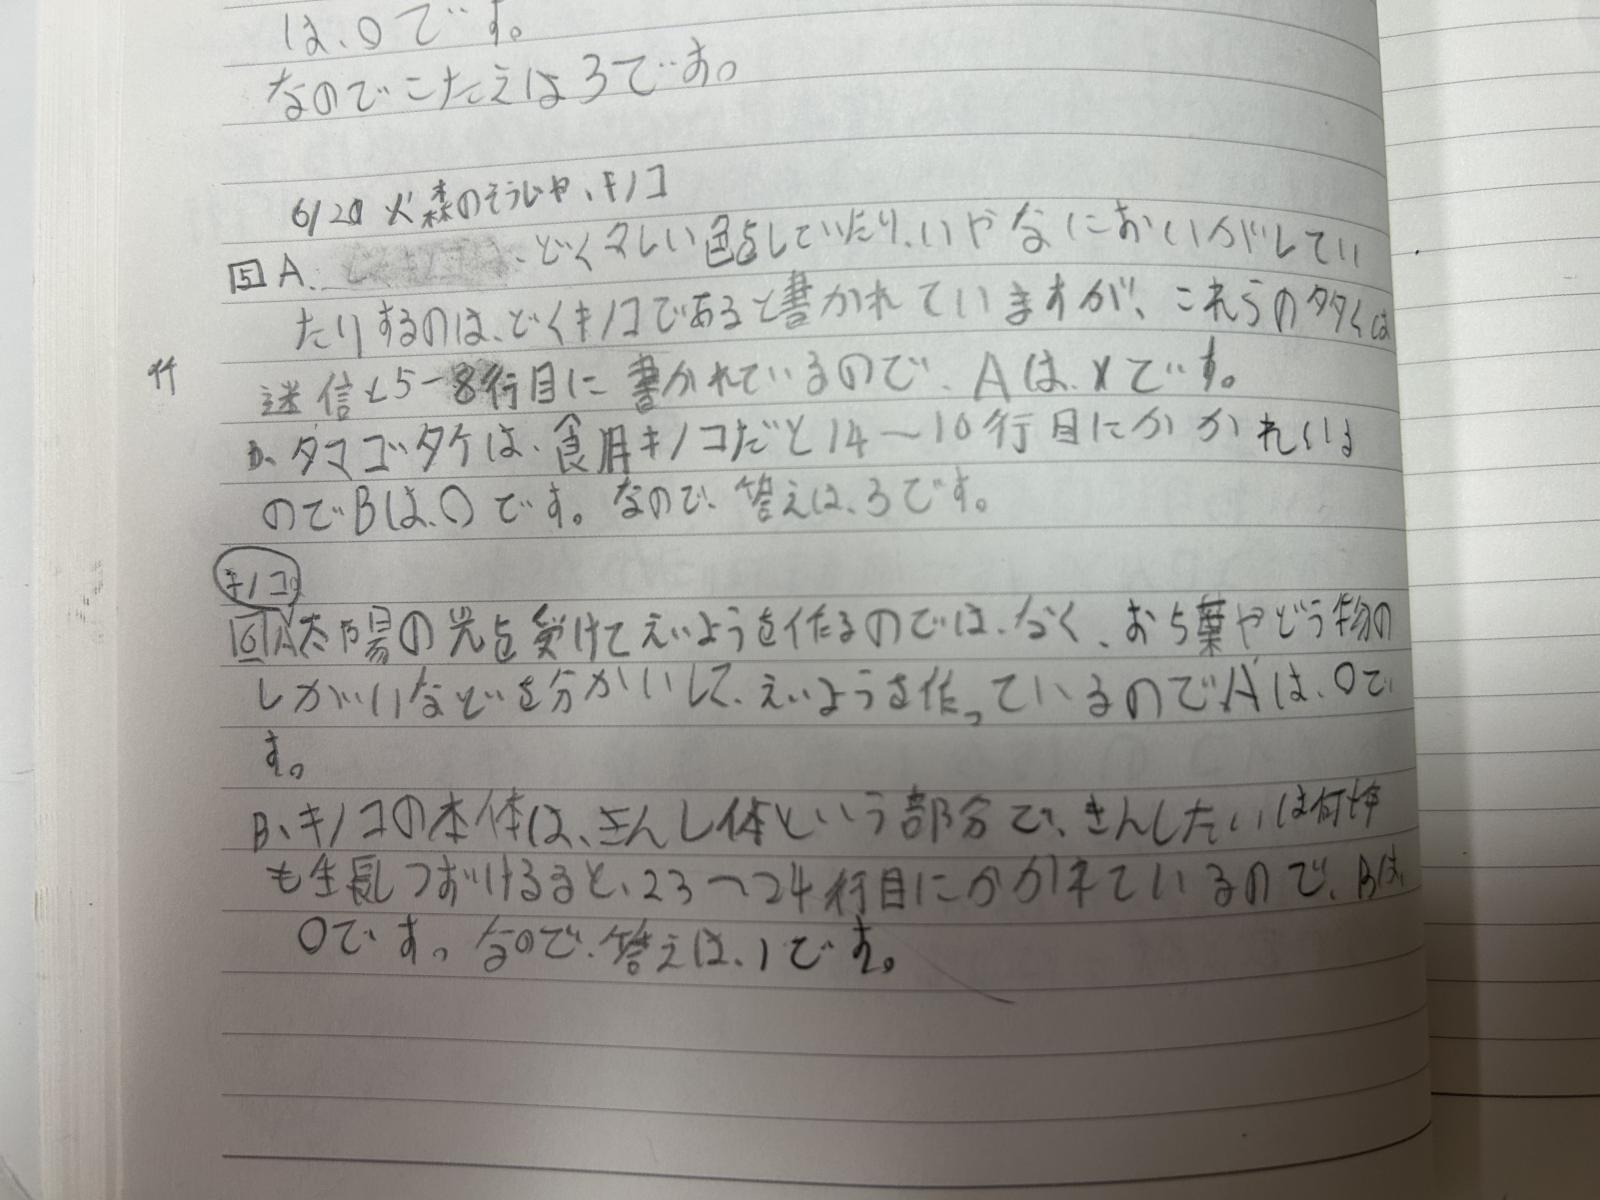 は、〇です。
なのでこたえは3です。
6/20 火 森のそうじや、キノコ
5 A. どくタしい色をしていたり、いやなにおいがしてい
たりするのは、どくキノコであると書かれていますが、これらの多くは
迷信と5-8行目に書かれているので、Aは、×です。
B、タマゴタケは、食用キノコだと14〜16行目にかかれいる
のでBは、〇です。なので、答えは、3です。
キノコ
6 A太陽の光を受けてえいようを作るのでは、なく、おち葉やどう物の
しがいなどを分かいして、えいようを作っているのでAは、〇で
す。
B、キノコの本体は、きんし体という部分で、きんしたいは何
も生長しつづけるると、23〜24行目にかかれているので、Bは、
〇です。なので、答えは、1です。